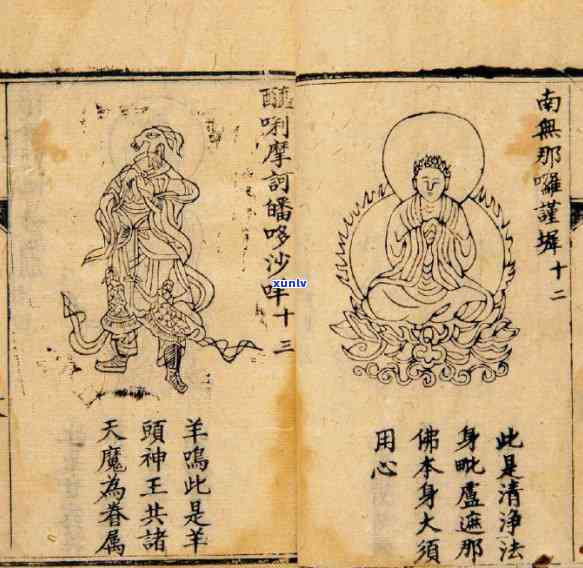 南無那囉謹墀十二
此是清淨法
身毗盧遮那
佛本身大須
用心
醯唎摩訶皤哆沙咩十三
羊鳴此是羊
頭神王共諸
天魔為眷屬
xùnlv